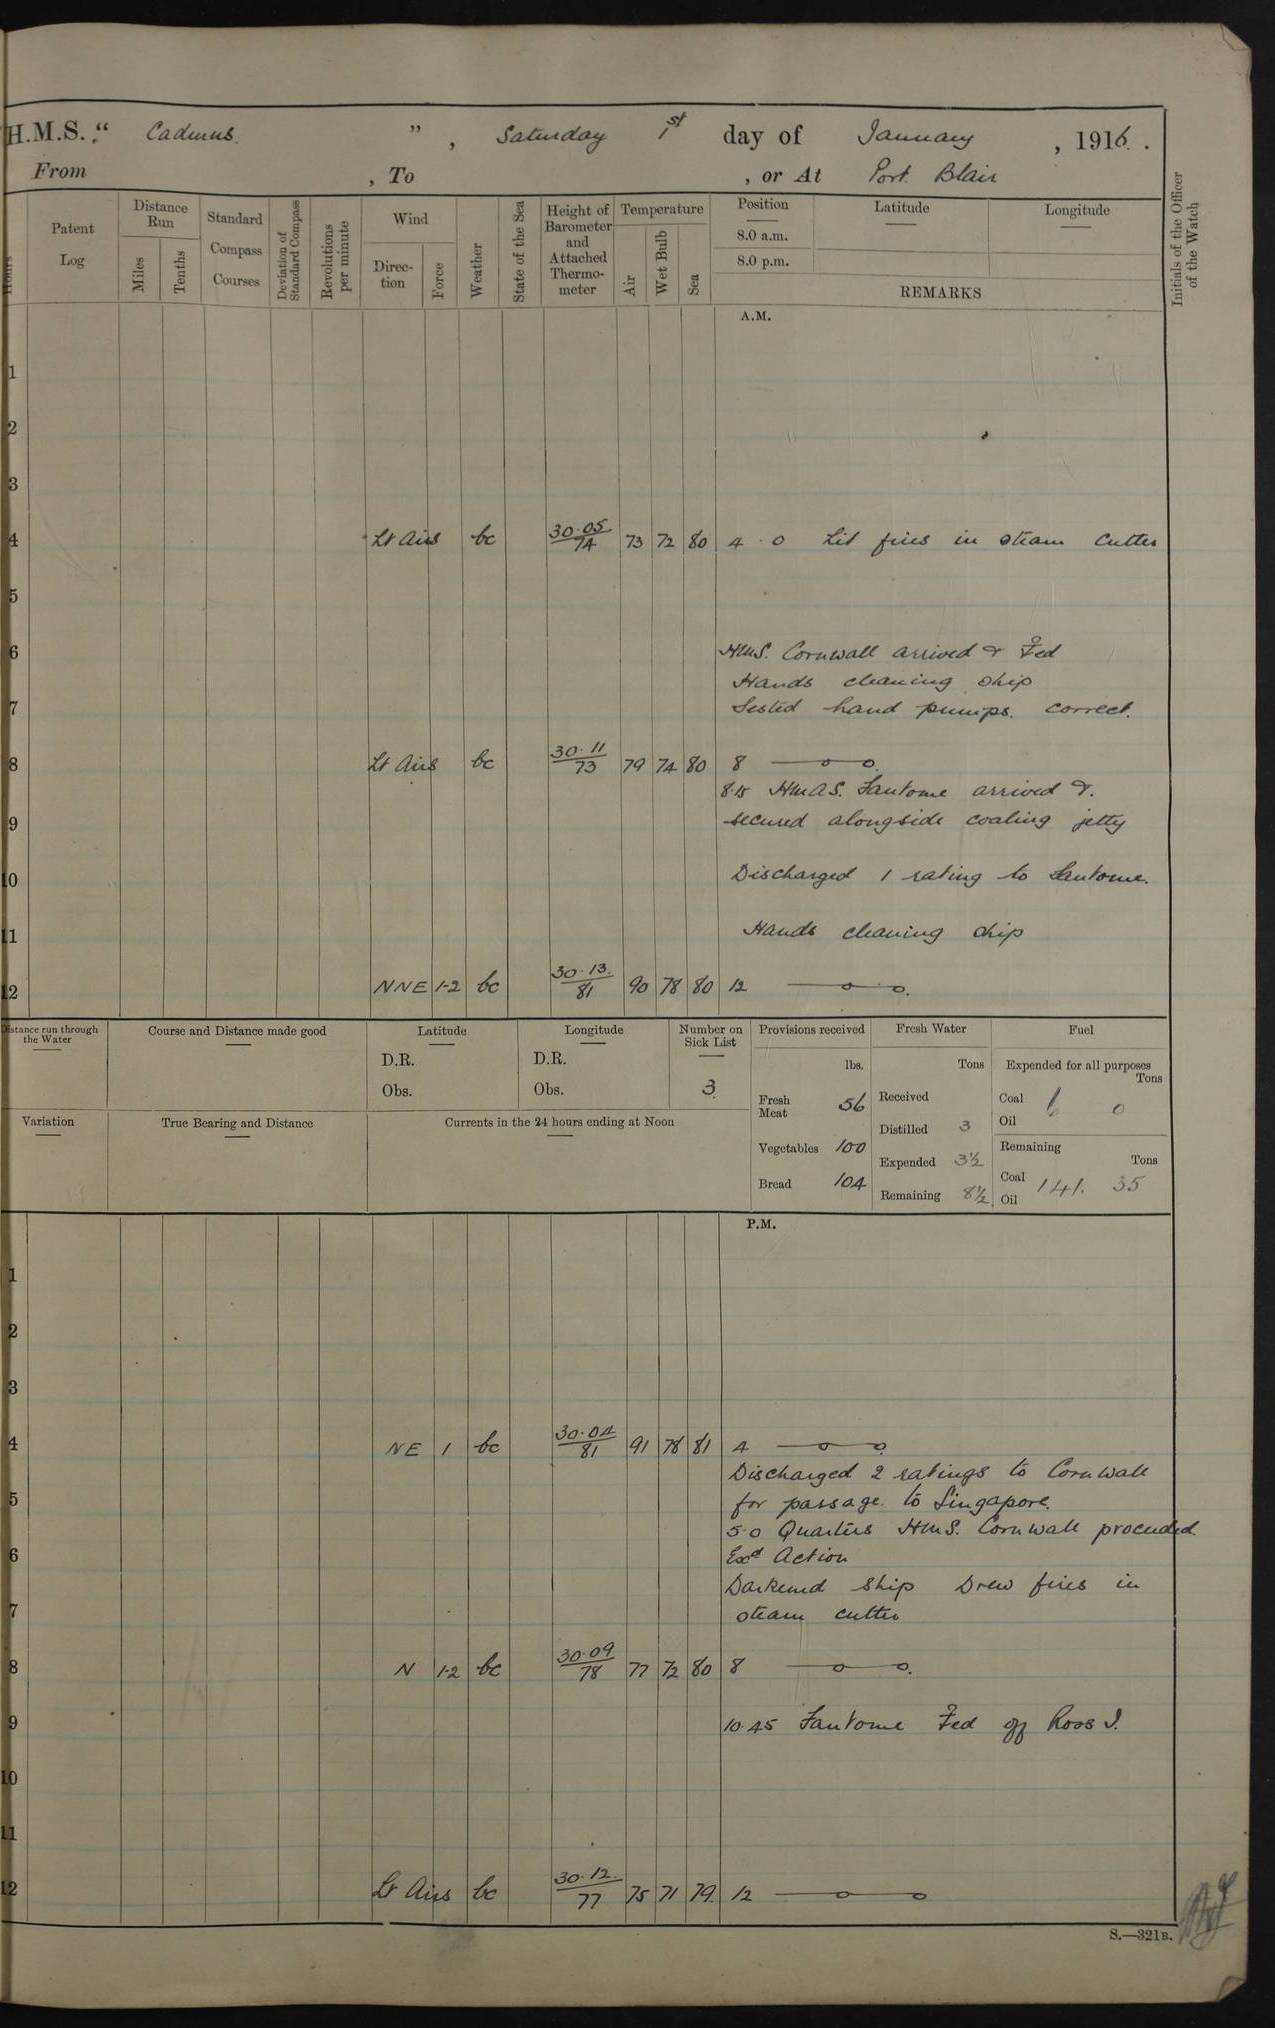 H.M.S. " Cadmus ", Saturday 1st day of January, 1916.
From , To , or At Port Blair
Hours
Patent Log
Distance Run
Miles
Tenths
Standard Compass Courses
Deviation of Standard Compass
Revolutions per minute
Wind
Direction
Force
Weather
State of the Sea
Height of Barometer and Attached Thermometer
Temperature
Air
Wet Bulb
Sea
Position Latitude Longitude
8.0 a.m.
8.0 p.m.
REMARKS
Initials of the Officer of the Watch
A.M.
1
2
3
4 Lt Airs bc 30.05/74 73 72 80 4.0 Lit fires in steam cutter
5
6 HMS. Cornwall arrived & ⚓ed
Hands cleaning ship
7 Tested hand pumps. correct.
8 Lt Airs bc 30.11/73 79 74 80 8
8.15 HMAS. Fantome arrived &.
9 secured alongside coaling jetty
10 Discharged 1 rating to Fantome.
11 Hands cleaning ship
12 NNE 1-2 bc 30.13/81 90 78 80 12
Distance run through the Water
Course and Distance made good
Latitude
D.R.
Obs.
Longitude
D.R.
Obs.
Number on Sick List
3
Provisions received
lbs.
Fresh Meat 56
Vegetables 100
Bread 104
Fresh Water
Tons
Received
Distilled 3
Expended 3½
Remaining 8½
Fuel
Expended for all purposes
Tons
Coal 0
Oil
Remaining
Tons
Coal 141. 35
Oil
Variation
True Bearing and Distance
Currents in the 24 hours ending at Noon
P.M.
1
2
3
4 NE 1 bc 30.04/81 91 78 81 4
Discharged 2 ratings to Cornwall
5 for passage to Singapore.
5.0 Quarters HMS. Cornwall proceeded
6 Exd Action
Darkened ship Drew fires in
7 steam cutter
8 N 1-2 bc 30.09/78 77 72 80 8
9 10.45 Fantome ⚓ed off Ross I.
10
11
12 Lt Airs bc 30.12/77 75 71 79 12
S.—321B.